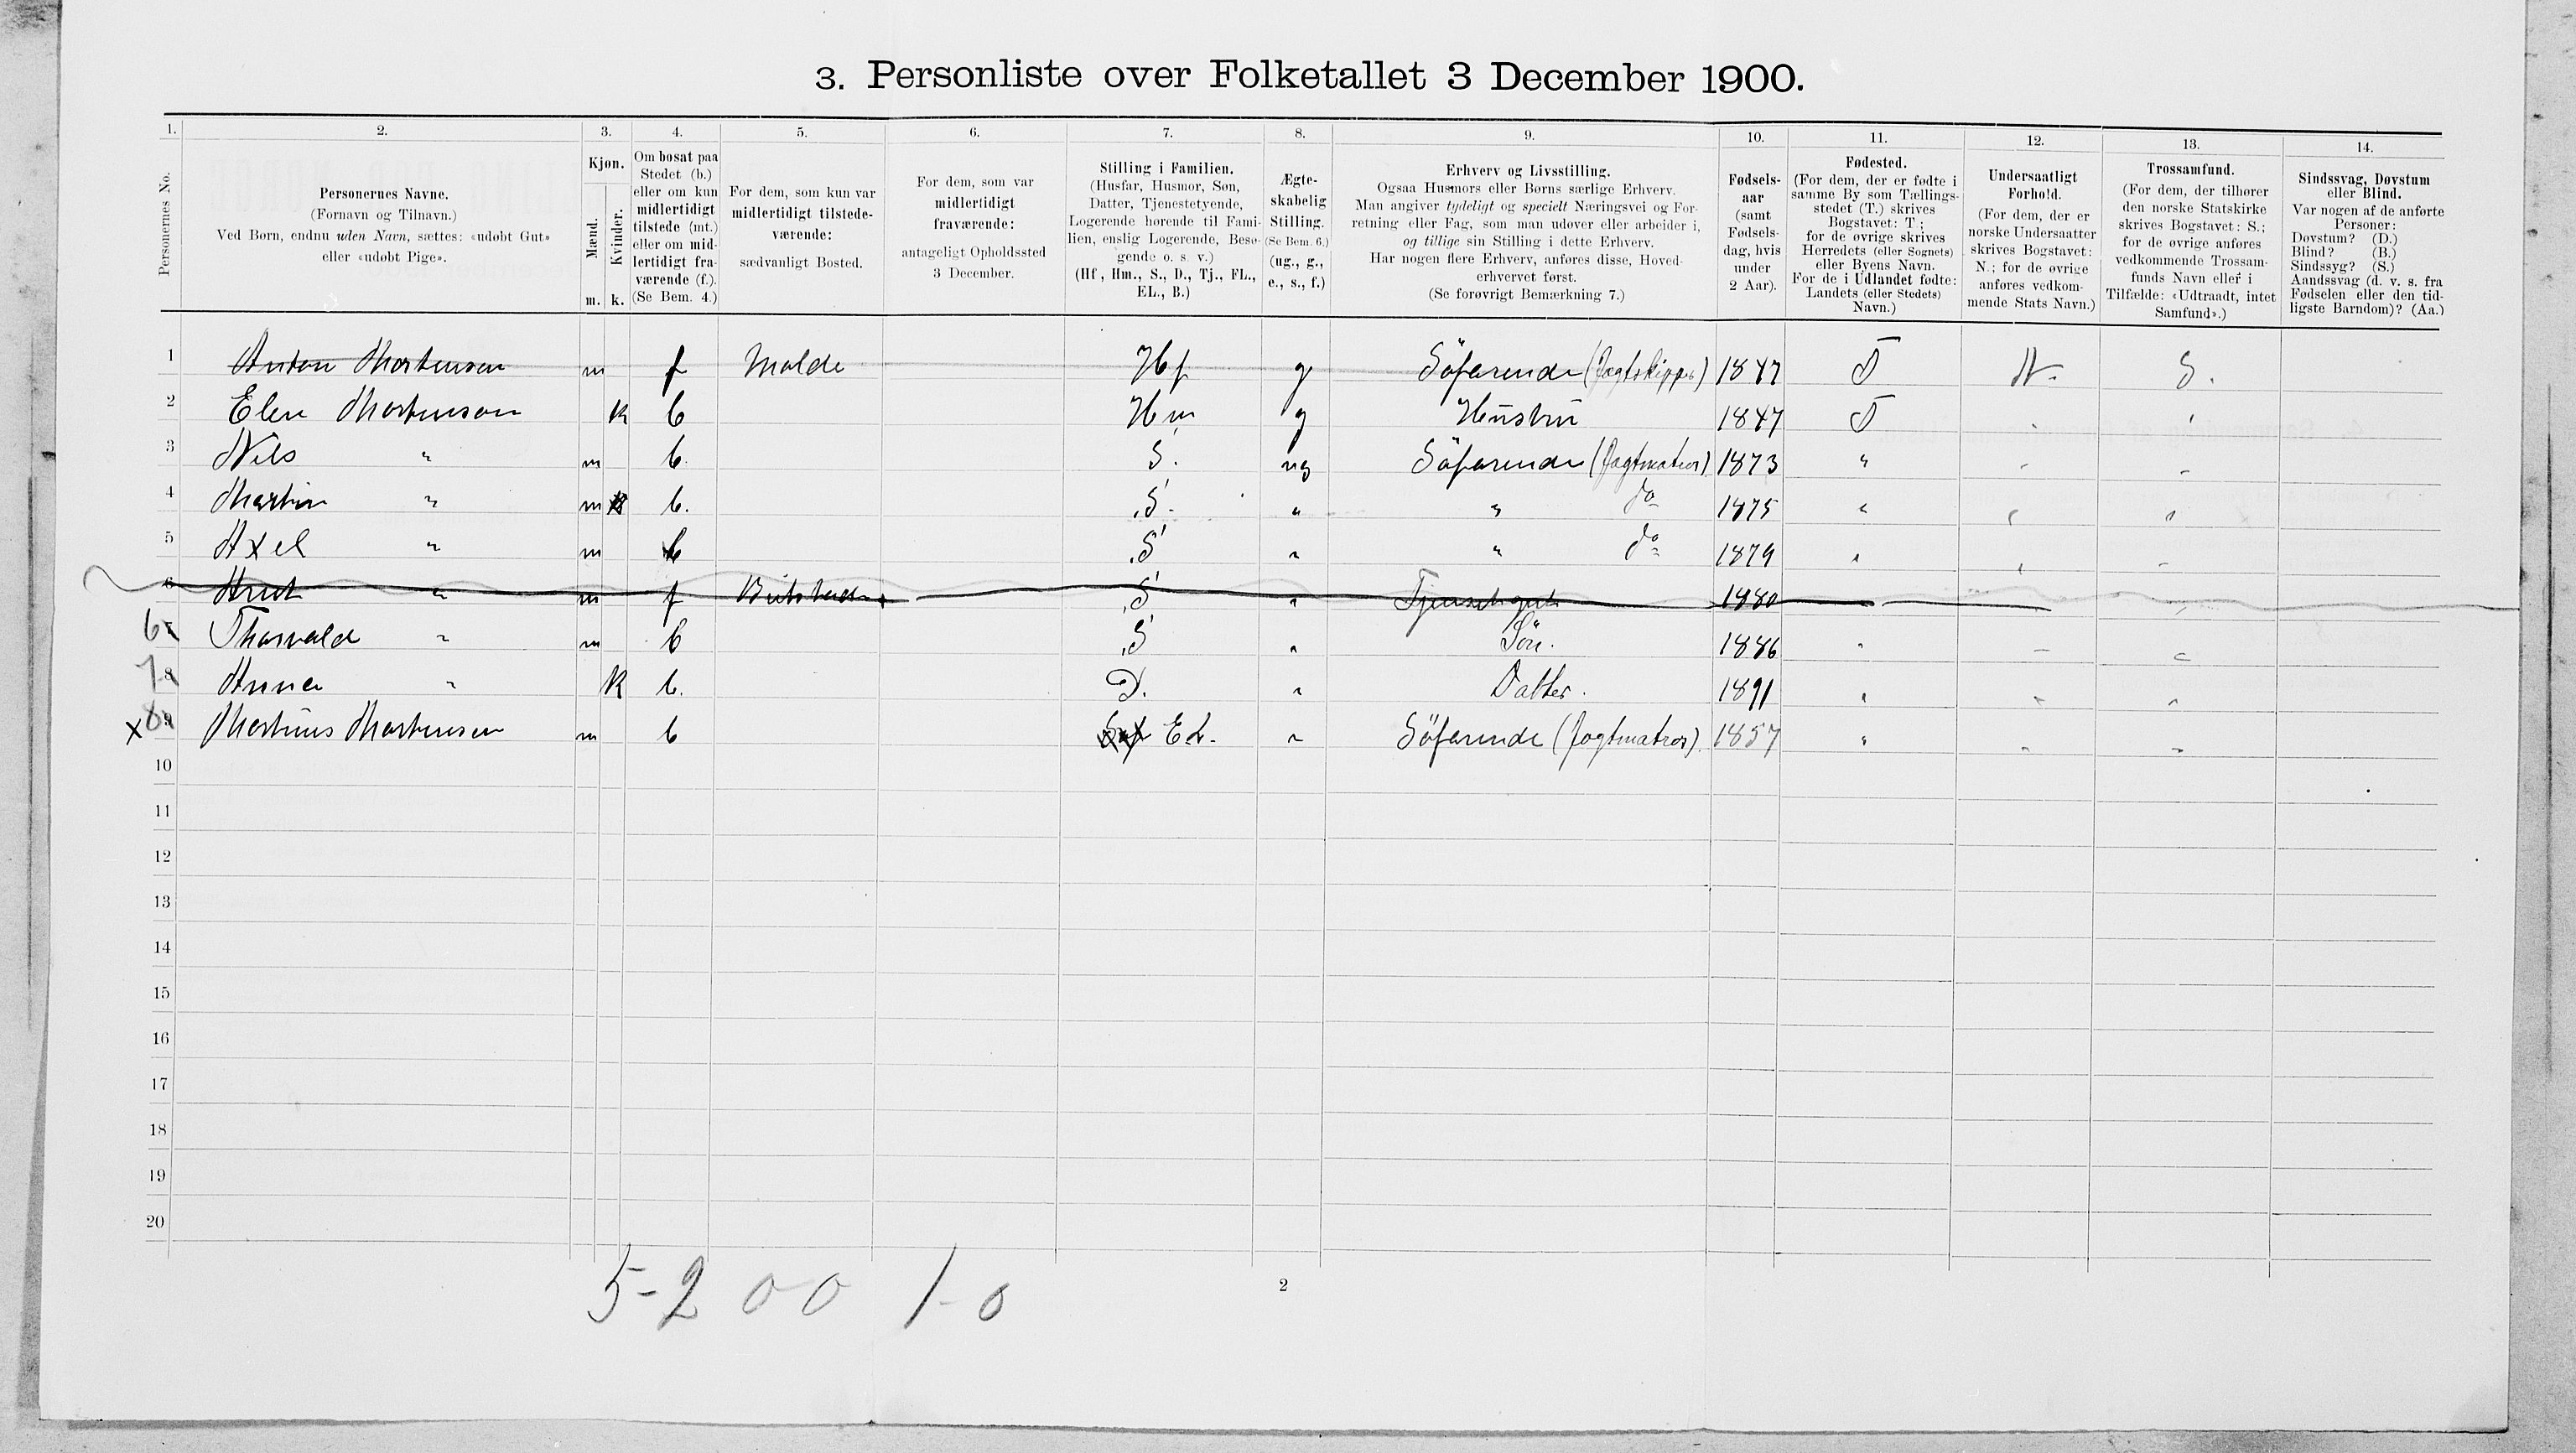 3. Personliste over Folketallet 3 December 1900.
1. 2. 3. 4. 5. 6. 7. 8. 9. 10. 11. 12. 13. 14.
Personernes No.
Personernes Navne.
(Fornavn og Tilnavn.)
Ved Børn, endnu uden Navn, sættes: «udøbt Gut»
eller «udøbt Pige».
Kjøn.
Mænd.
Kvinder.
m. k.
Om bosat paa
Stedet (b.)
eller om kun
midlertidigt
tilstede (mt.)
eller om mid-
lertidigt fra-
værende (f.).
(Se Bem. 4.)
For dem, som kun var
midlertidigt tilstede-
værende:
sædvanligt Bosted.
For dem, som var
midlertidigt
fraværende:
antageligt Opholdssted
3 December.
Stilling i Familien.
(Husfar, Husmor, Søn,
Datter, Tjenestetyende,
Logerende hørende til Fami-
lien, enslig Logerende, Besø-
gende o. s. v.)
(Hf., Hm., S., D., Tj., FL.,
EL., B.)
Ægte-
skabelig
Stilling.
(Se Bem. 6.)
(ug., g.,
e., s., f.)
Erhverv og Livsstilling.
Ogsaa Husmors eller Børns særlige Erhverv.
Man angiver tydeligt og specielt Næringsvei og For-
retning eller Fag, som man udøver eller arbeider i,
og tillige sin Stilling i dette Erhverv.
Har nogen flere Erhverv, anføres disse, Hoved-
erhvervet først.
(Se forøvrigt Bemærkning 7.)
Fødsels-
aar
(samt
Fødsels-
dag, hvis
under
2 Aar).
Fødested.
(For dem, der er fødte i
samme By som Tællings-
stedet (T.) skrives
Bogstavet: T.;
for de øvrige skrives
Herredets (eller Sognets)
eller Byens Navn.
For de i Udlandet fødte:
Landets (eller Stedets)
Navn.)
Undersaatligt
Forhold.
(For dem, der er
norske Undersaatter
skrives Bogstavet:
N.; for de øvrige
anføres vedkom-
mende Stats Navn.)
Trossamfund.
(For dem, der tilhører
den norske Statskirke
skrives Bogstavet: S.;
for de øvrige anføres
vedkommende Trossam-
funds Navn eller i
Tilfælde: «Udtraadt, intet
Samfund».)
Sindssvag, Døvstum
eller Blind.
Var nogen af de anførte
Personer:
Døvstum? (D.)
Blind? (B.)
Sindssyg? (S.)
Aandssvag (d. v. s. fra
Fødselen eller den tid-
ligste Barndom)? (Aa.)
1 Anton Mortensen m f Molde Hf g Söfarende (Jagtskipper) 1847 T N. S.
2 Elen Mortensen k b Hm g Hustru 1847 T
3 Nils " m b. S. ug Söfarende (Jagtmatros) 1873 "
4 Martin " m k b. S. " " do 1875 "
5 Axel " m b S " " do 1879 "
6 " m f S " 1880
6 7 Thorvald " m b S " Sön. 1886 "
7 8 Anna " k b. D. " Datter. 1891 "
x 8 9 Martinus Mortensen m b EL. " Söfarende (Jagtmatros). 1857 "
10
11
12
13
14
15
16
17
18
19
20
5 - 2 0 0 1 - 0
2